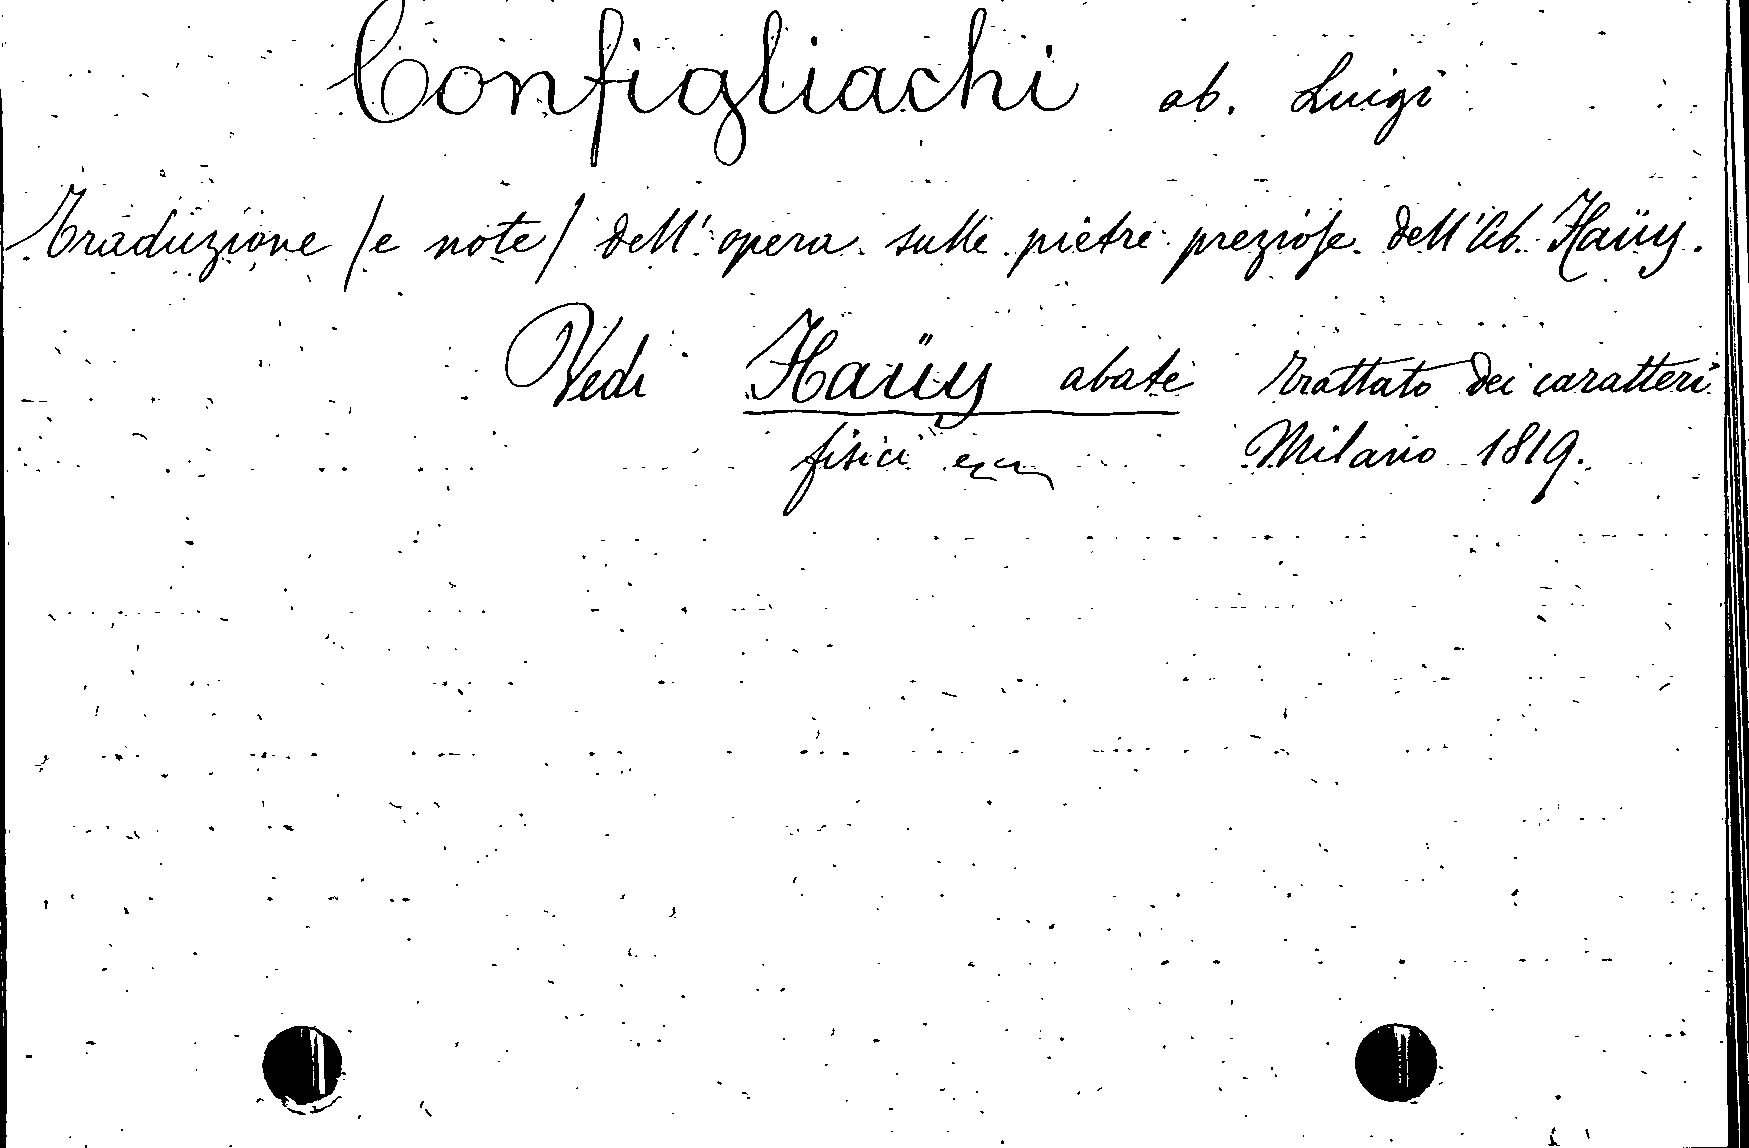 Configliachi ab. Luigi
Traduzione /e note/ dell'opera sulle pietre preziose dell'Ab. Haüy.
Vedi Haüy abate trattato dei caratteri
fisici ecc Milano 1819.